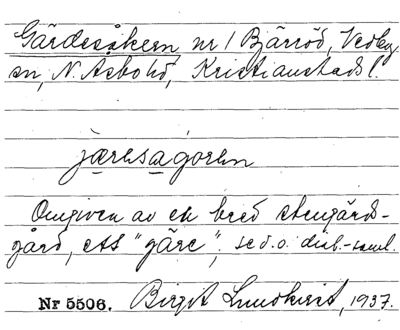 Gärdesåkern nr 1 Bjärröd, Vedby
sn, N. Åsbo hd, Kristianstads l.
jæresagoren
Omgiven av en bred stengärds-
gård, ett "gäre", se d.o. dial.-saml.
Nr 5506. Birgit Lundkvist, 1937.